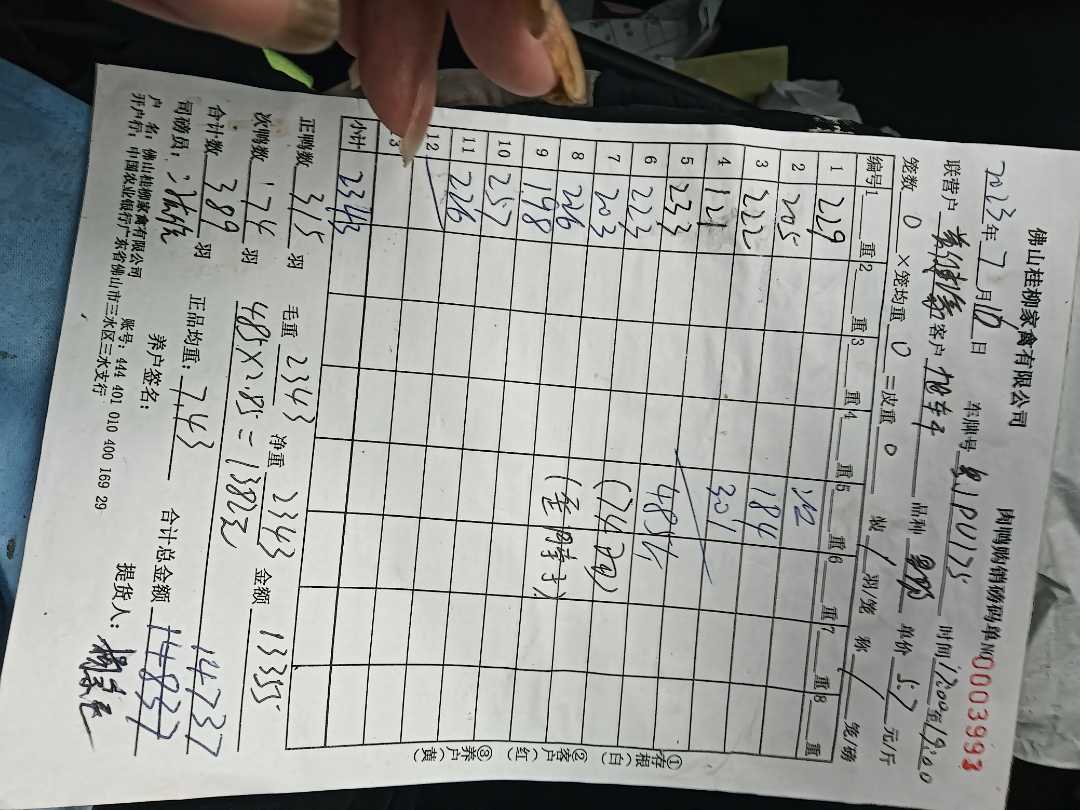 佛山桂柳家禽有限公司 肉鸭购销磅码单 № 0003993
2023年7月10日 车牌号 时间
联营户 客户 品种 单价5.7元/斤
笼数 0 ×笼均重 0 =皮重 0 装 / 羽/笼 称 / 笼/磅
编号 1 重 2 重 3 重 4 重 5 重 6 重 7 重 8 重
1 229
2 205 112
3 222 184
4 121 301
5 233
6 223 485斤
7 203 (74只)
8 226
9 198
10 257
11 226
12
13
小计 2343
正鸭数 315 羽 毛重 2343 净重 2343 金额 13355
次鸭数 174 羽 485×2.85=1382元
合计数 389 羽 正品均重: 7.43 合计总金额 14837 14737
司磅员: 养户签名: 提货人:
户 名: 佛山桂柳家禽有限公司 账号: 444 401 010 400 169 29
开户行: 中国农业银行广东省佛山市三水区三水支行
①存根(白) ②客户(红) ③养户(黄)